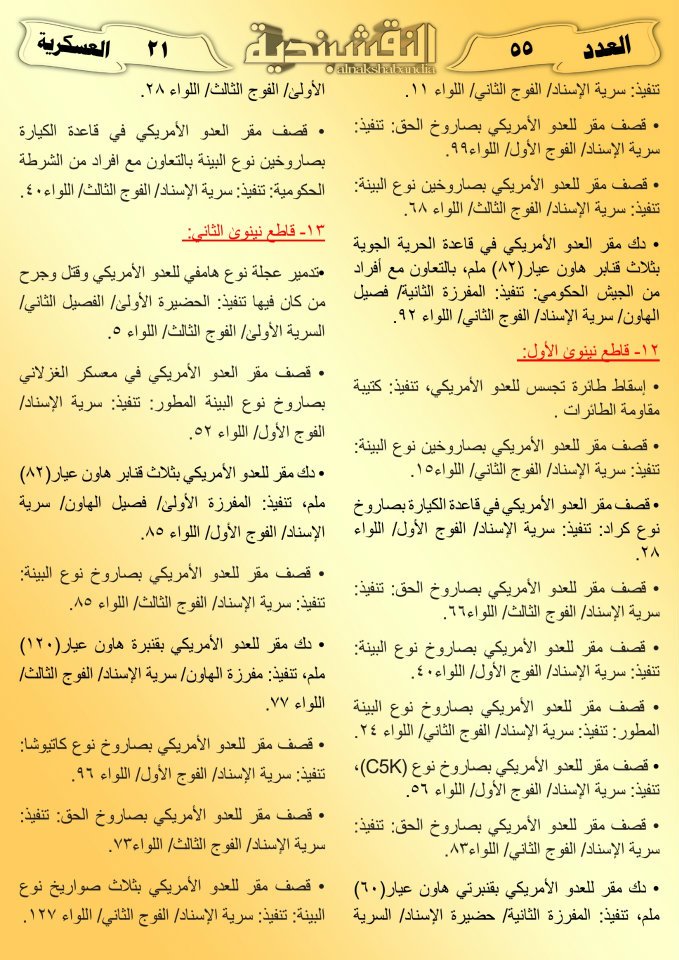 العدد
٥٥
النقشبندية
alnakshabandia
٢١
العسكرية
تنفيذ: سرية الإسناد/ الفوج الثاني/ اللواء ١١.
• قصف مقر للعدو الأمريكي بصاروخ الحق: تنفيذ:
سرية الإسناد/ الفوج الأول/ اللواء٩٩.
• قصف مقر للعدو الأمريكي بصاروخين نوع البينة:
تنفيذ: سرية الإسناد/ الفوج الثالث/ اللواء ٦٨.
• دك مقر العدو الأمريكي في قاعدة الحرية الجوية
بثلاث قنابر هاون عيار(٨٢) ملم، بالتعاون مع أفراد
من الجيش الحكومي: تنفيذ: المفرزة الثانية/ فصيل
الهاون/ سرية الإسناد/ الفوج الثاني/ اللواء ٩٢.
١٢- قاطع نينوىٰ الأول:
• إسقاط طائرة تجسس للعدو الأمريكي، تنفيذ: كتيبة
مقاومة الطائرات .
• قصف مقر للعدو الأمريكي بصاروخين نوع البينة:
تنفيذ: سرية الإسناد/ الفوج الثاني/ اللواء١٥.
• قصف مقر العدو الأمريكي في قاعدة الكيارة بصاروخ
نوع كراد: تنفيذ: سرية الإسناد/ الفوج الأول/ اللواء
٢٨.
• قصف مقر للعدو الأمريكي بصاروخ الحق: تنفيذ:
سرية الإسناد/ الفوج الثالث/ اللواء٦٦.
• قصف مقر للعدو الأمريكي بصاروخ نوع البينة:
تنفيذ: سرية الإسناد/ الفوج الأول/ اللواء٤٠.
• قصف مقر للعدو الأمريكي بصاروخ نوع البينة
المطور: تنفيذ: سرية الإسناد/ الفوج الثاني/ اللواء ٢٤.
• قصف مقر للعدو الأمريكي بصاروخ نوع (C5K)،
تنفيذ: سرية الإسناد/ الفوج الأول/ اللواء ٥٦.
• قصف مقر للعدو الأمريكي بصاروخ الحق: تنفيذ:
سرية الإسناد/ الفوج الثاني/ اللواء٨٣.
• دك مقر للعدو الأمريكي بقنبرتي هاون عيار(٦٠)
ملم، تنفيذ: المفرزة الثانية/ حضيرة الإسناد/ السرية
الأولىٰ/ الفوج الثالث/ اللواء ٢٨.
• قصف مقر العدو الأمريكي في قاعدة الكيارة
بصاروخين نوع البينة بالتعاون مع افراد من الشرطة
الحكومية: تنفيذ: سرية الإسناد/ الفوج الثالث/ اللواء٤٠.
١٣- قاطع نينوىٰ الثاني:
•تدمير عجلة نوع هامفي للعدو الأمريكي وقتل وجرح
من كان فيها تنفيذ: الحضيرة الأولىٰ/ الفصيل الثاني/
السرية الأولىٰ/ الفوج الثالث/ اللواء ٥.
• قصف مقر العدو الأمريكي في معسكر الغزلاني
بصاروخ نوع البينة المطور: تنفيذ: سرية الإسناد/
الفوج الأول/ اللواء ٥٢.
• دك مقر للعدو الأمريكي بثلاث قنابر هاون عيار(٨٢)
ملم، تنفيذ: المفرزة الأولىٰ/ فصيل الهاون/ سرية
الإسناد/ الفوج الأول/ اللواء ٨٥.
• قصف مقر للعدو الأمريكي بصاروخ نوع البينة:
تنفيذ: سرية الإسناد/ الفوج الثالث/ اللواء ٨٥.
• دك مقر للعدو الأمريكي بقنبرة هاون عيار(١٢٠)
ملم، تنفيذ: مفرزة الهاون/ سرية الإسناد/ الفوج الثالث/
اللواء ٧٧.
• قصف مقر للعدو الأمريكي بصاروخ نوع كاتيوشا:
تنفيذ: سرية الإسناد/ الفوج الأول/ اللواء ٩٦.
• قصف مقر للعدو الأمريكي بصاروخ الحق: تنفيذ:
سرية الإسناد/ الفوج الثالث/ اللواء٧٣.
• قصف مقر للعدو الأمريكي بثلاث صواريخ نوع
البينة: تنفيذ: سرية الإسناد/ الفوج الثاني/ اللواء ١٢٧.